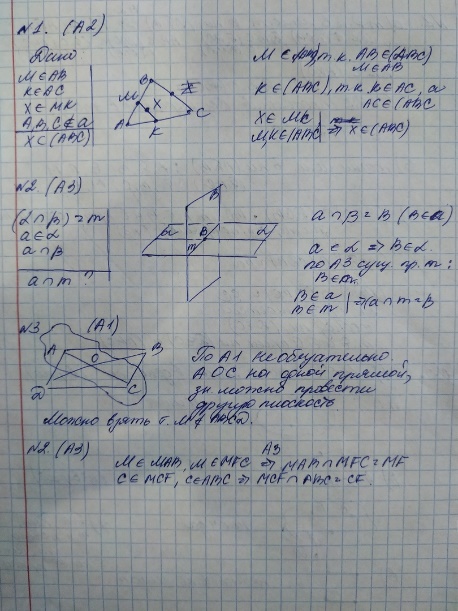 №1. (А2)
Дано
M∈AB
K∈AC
X∈MK
A,B,C∉a
X∈(ABC)
B
M
X
A
K
C
M∈ т.к. AB∈(ABC)
M∈AB
K∈(ABC), т.к. K∈AC, а
AC∈(ABC
X∈MK
M,K∈(ABC) ⇒ X∈(ABC)
№2. (А3)
(α∩β)=m
a∈α
a∩β
a∩m ?
β
a
B
α
m
a∩β = B (B∈a)
a⊂α ⇒ B∈α.
по А3 сущ. пр. m:
B∈m.
B∈a
B∈m ⇒ a∩m=B
№3 (А1)
A
O
B
D
C
По А1 необязательно
AOC на одной прямой,
зн можно провести
другую плоскость
Можно взять т. M∉ABCD.
№2. (А3)
А3
M∈MAB, M∈MFC ⇒ MAB∩MFC=MF
C∈MCF, C∈ABC ⇒ MCF∩ABC=CF.